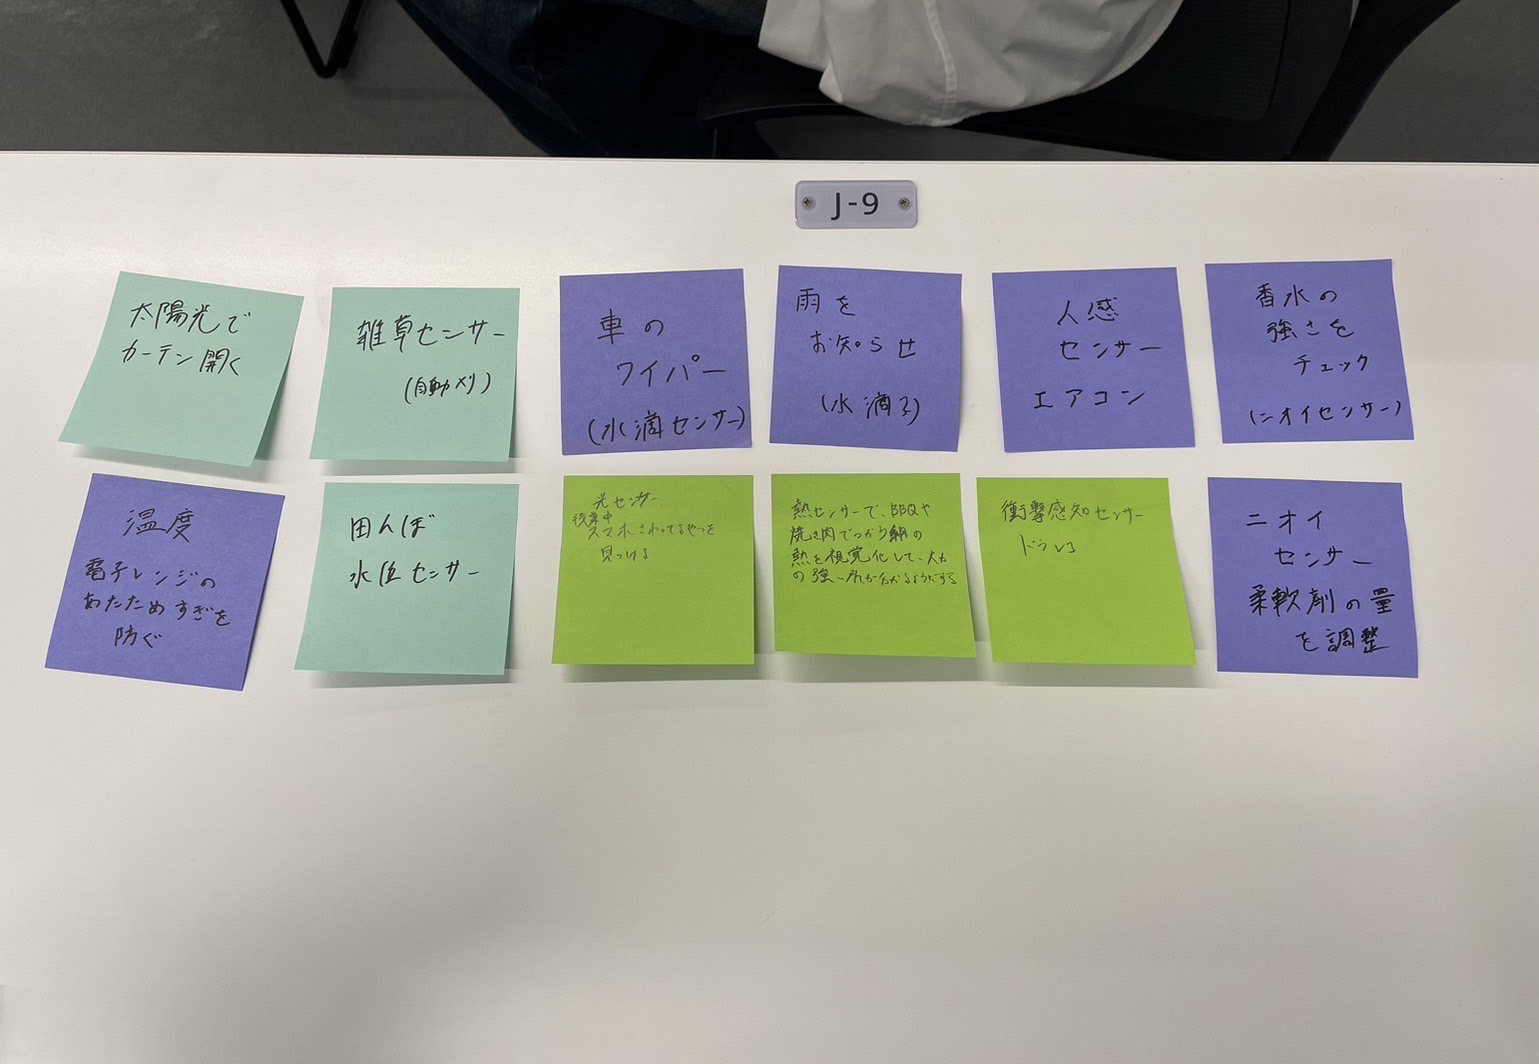 J-9
太陽光で
カーテン開く
雑草センサー
(自動メリ)
車の
ワイパー
(水滴センサー)
雨を
お知らせ
(水滴)
人感
センサー
エアコン
香水の
強さを
チェック
(ニオイセンサー)
温度
電子レンジの
あたためすぎを
防ぐ
田んぼ
水位センサー
光センサー
授業中
スマホさわってるやつを
見つける
熱センサーで、BBQや
焼き肉でつかう網の
熱を視覚化して、火力
の強い所が分かるようにする
衝撃感知センサー
ドラレコ
ニオイ
センサー
柔軟剤の量
を調整